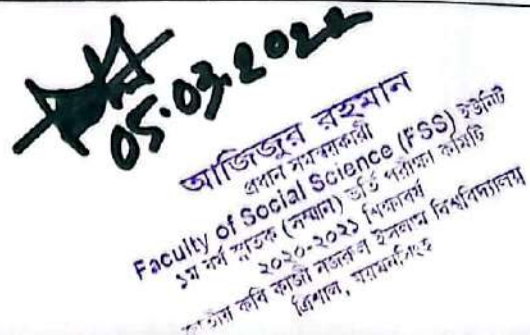 05.03.2022
আজিজুর রহমান
প্রধান সমন্বয়কারী
Faculty of Social Science (FSS) ইউনিট
১ম বর্ষ স্নাতক (সম্মান) ভর্তি পরীক্ষা কমিটি
২০২০-২০২১ শিক্ষাবর্ষ
জাতীয় কবি কাজী নজরুল ইসলাম বিশ্ববিদ্যালয়
ত্রিশাল, ময়মনসিংহ